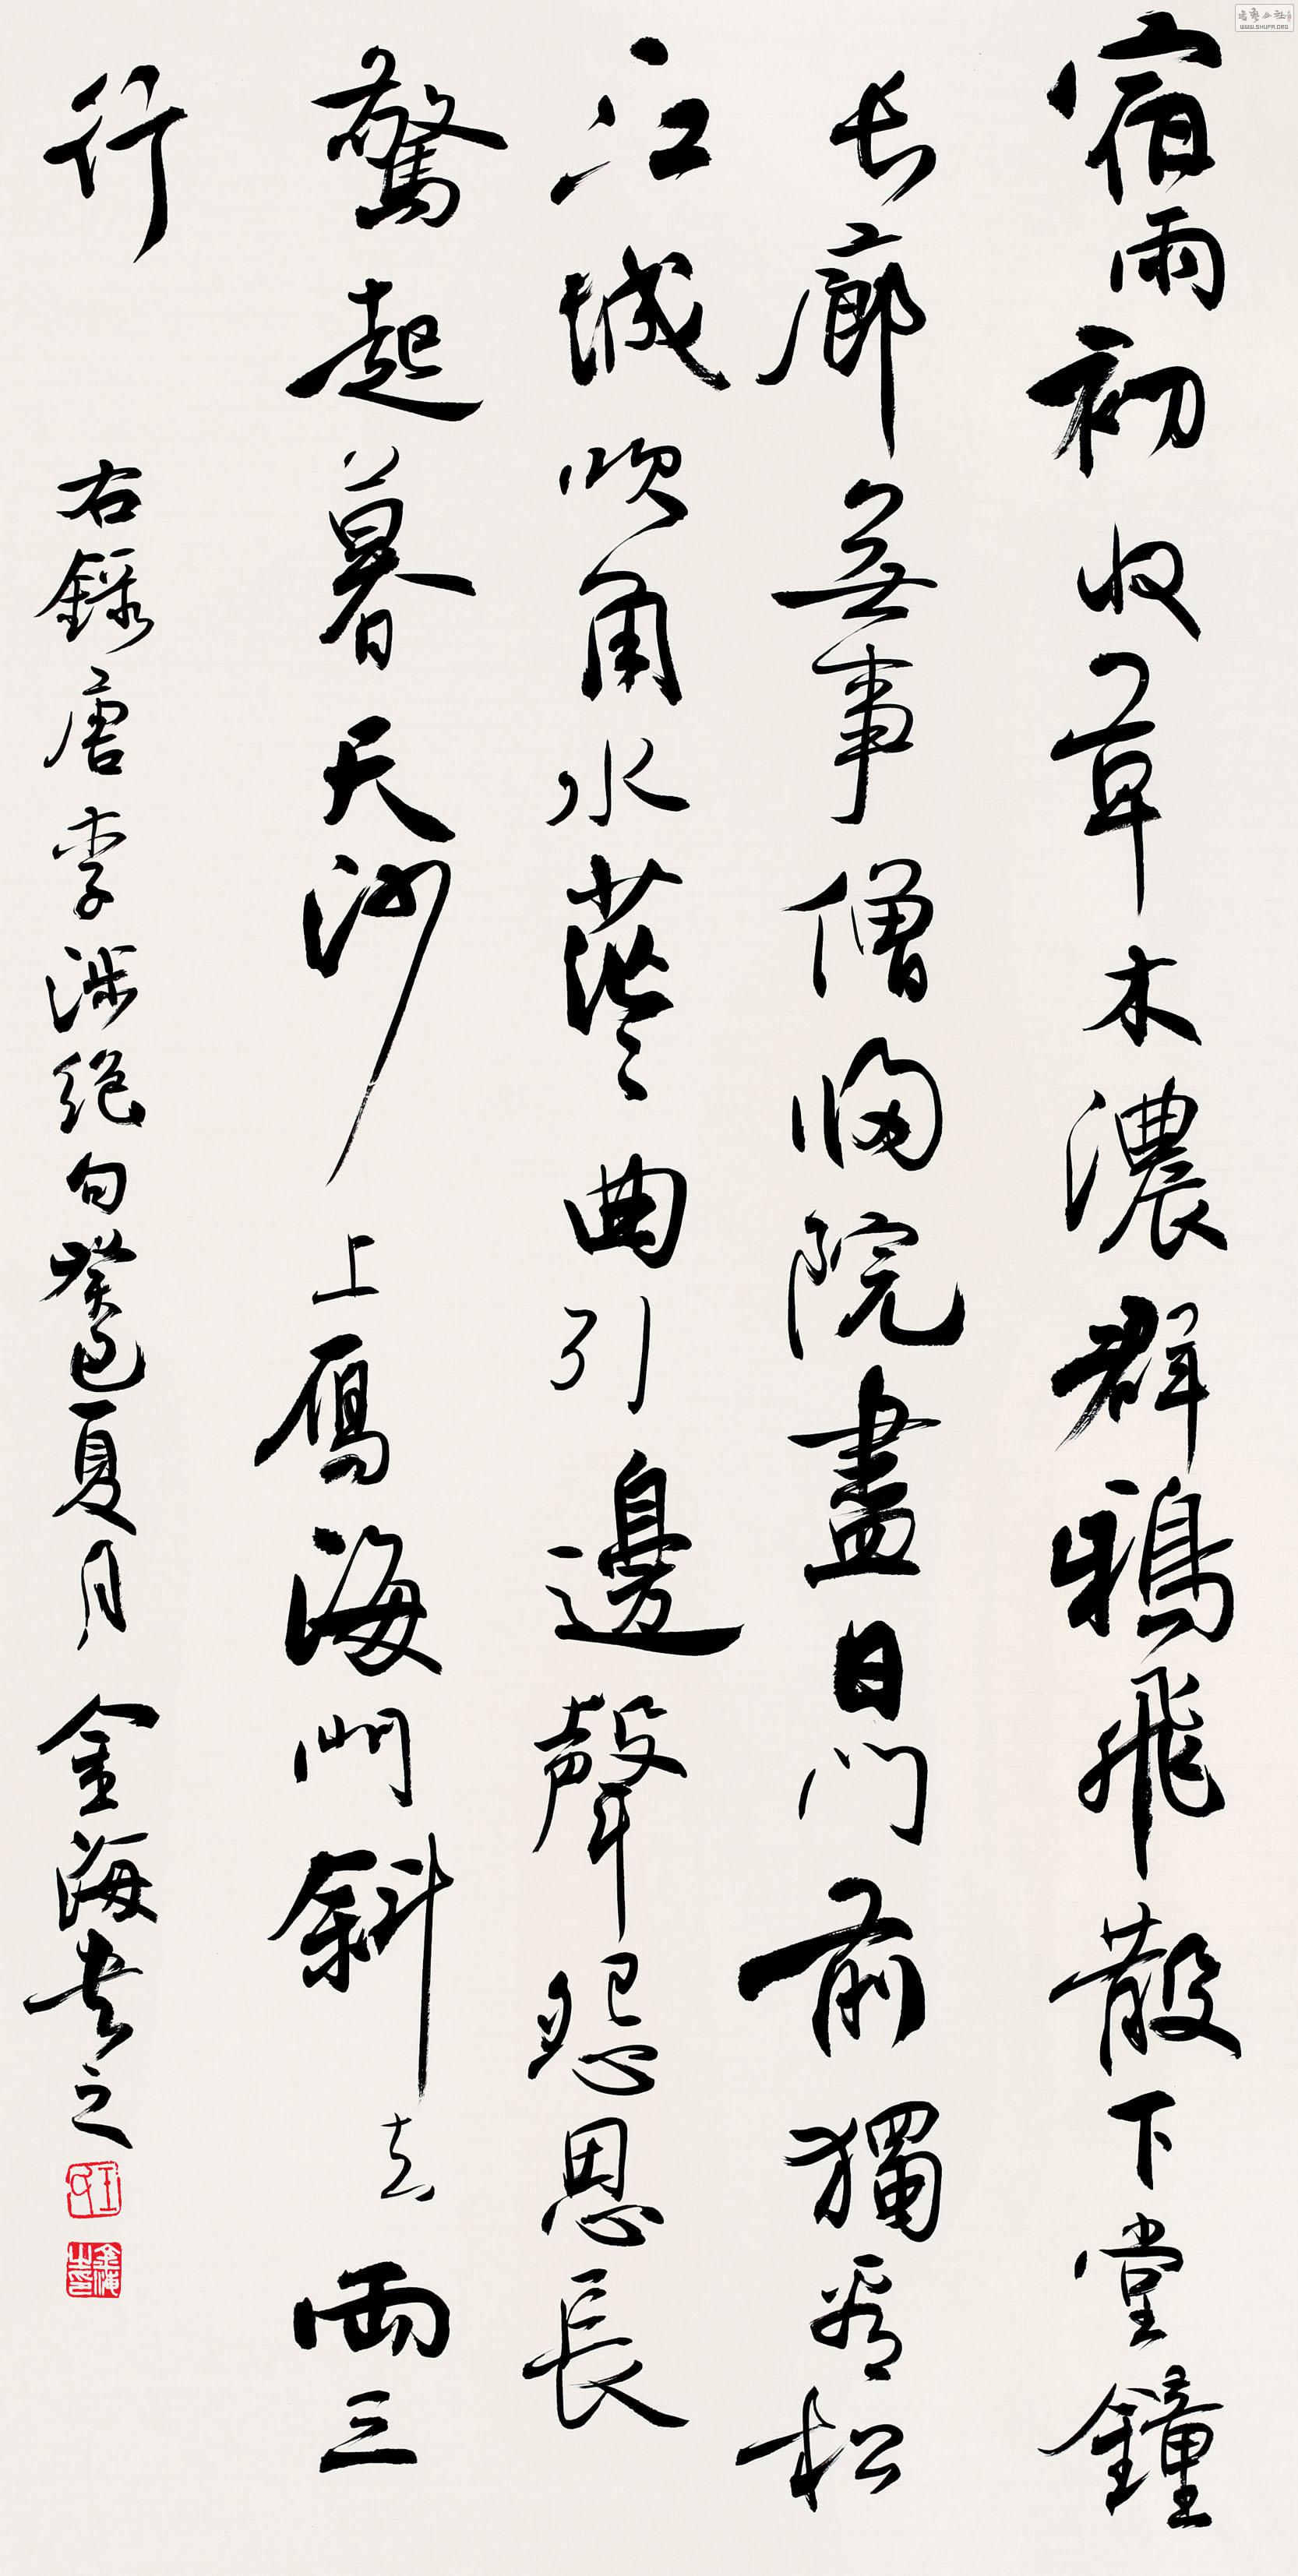 宿雨初收草木濃群鴉飛散下堂鐘
長廊無事僧歸院盡日門前獨看松
江城吹角水茫々曲引邊聲怨思長
驚起暮天沙上鴈海門斜去兩三
行
右錄唐李涉絕句癸巳夏月金海書之
金海之印
WWW.SHUFA.ORG